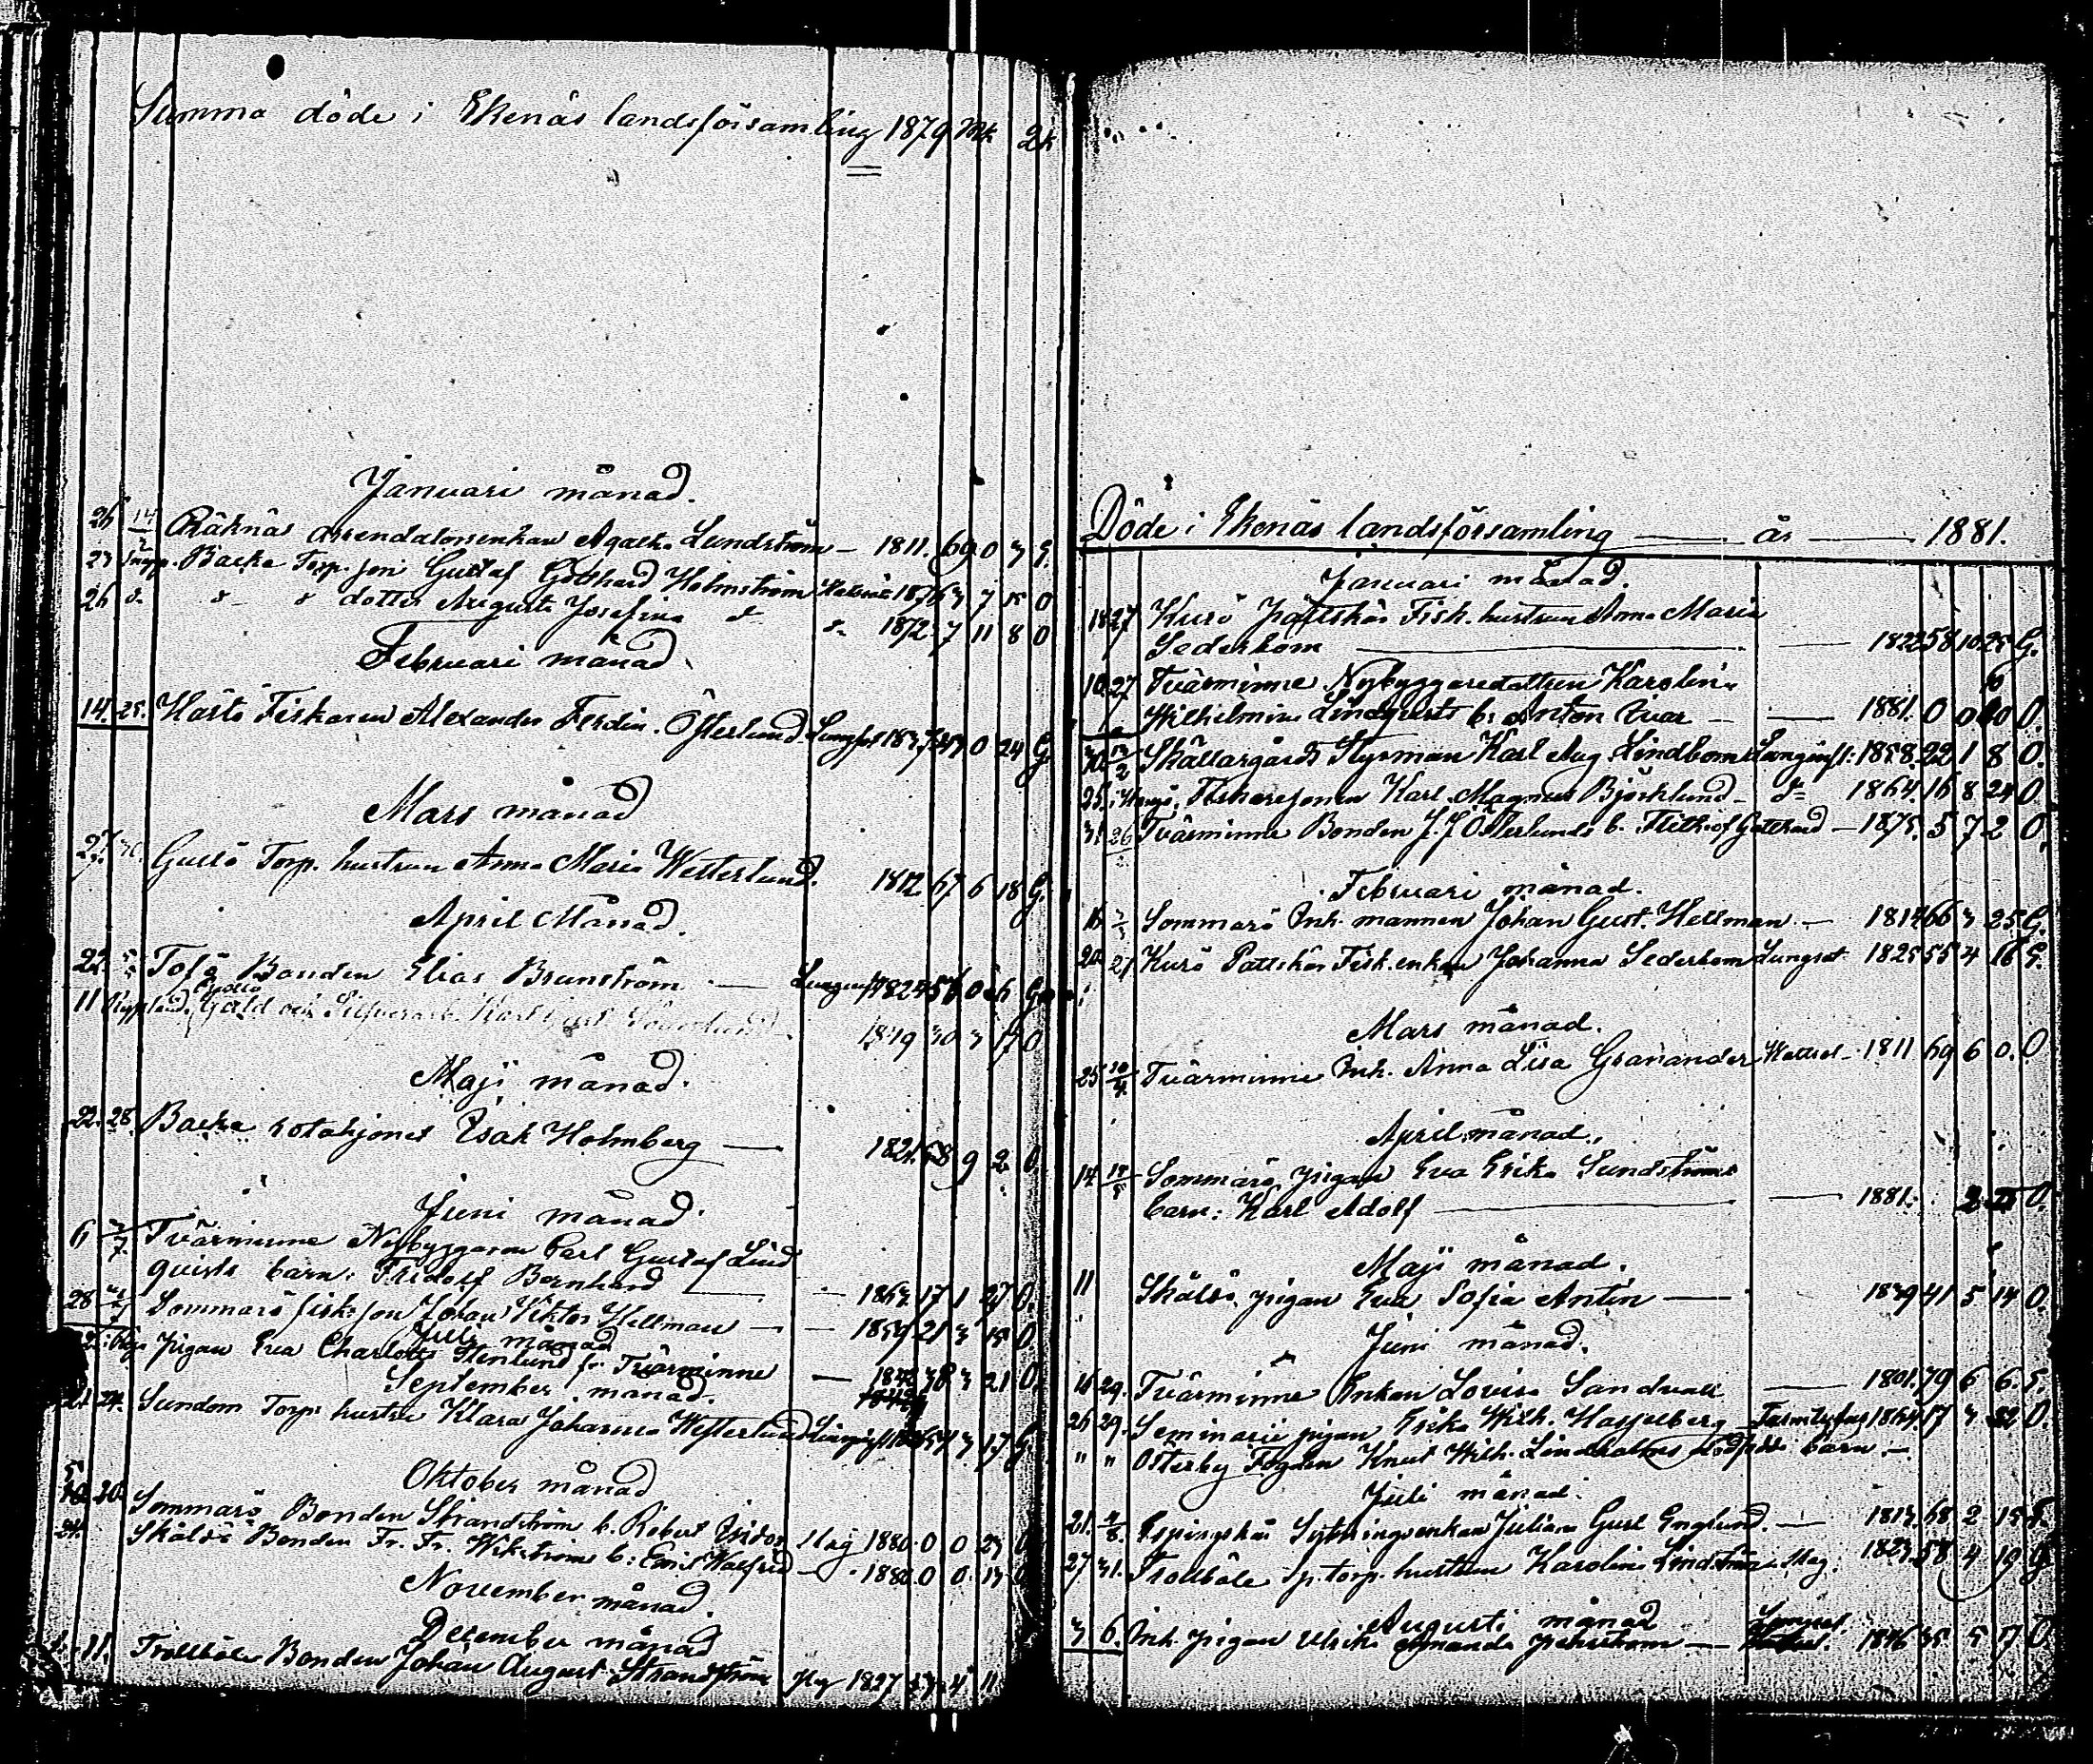 Summa döde i Ekenäs landsförsamling 1879 Mk 2k
Januari månad.
26 14/2 Räknäs arrendatorsenkan Agatha Lundström — 1811. 69 0 3 G.
23 Backa Torp. son Gustaf Gotthard Holmström 1876 3 7 15 O
26 d. d d dotter Augusta Josefina d d. 1872. 7 11 8 O
Februari månad.
14. 25. Hästö Fiskaren Alexander Ferdin. Österlund 0 24 G
Mars månad
27 Gullö Torp. hustrun Anna Maria Westerlund. 1812. 67 6 18 G.
April Månad.
22. 5/5 Torö Bonden Elias Brunström — 1824
11 Guld och Silfverarb. Karl 1849 30 3 17 O
Maji månad.
22. 28. Backa rotehjonet Isak Holmberg — 1821. 58 9 2 O.
Juni månad
6 Tvärminne Nybyggaren Carl Gustaf Lind
qvists barn: Fridolf Bernhard — 1863. 17 1 27 O.
28 Sommarö fisk. son Johan Viktor Hellman — 1859 21 3 15 O.
Juli månad
pigan Eva Charlotta Stenlund fr. Tvärminne — 1842 38 3 21 O.
September månad.
21. 24. Sundom Torp. hustru Klara Johanna Westerlund 3 17 G.
Oktober månad
20. Sommarö Bonden Strandström b. Robert Isidor Slag 1880. 0 0 23 O
24. Skälsö Bonden Fr. Fr. Wikström b: Emil Walfrid — 1880. 0 0. 13 O
November månad.
December månad
11. Trollböle Bonden Johan August Strandström 1827 53. 4 11
Döde i Ekenäs landsförsamling — år — 1881.
Januari månad.
18 27 Kurö Pattskär Fisk. hustrun Anna Maria
Sederbom — 1822 58 10 25 G.
10 27 Tvärminne Nybyggaredottren Karolina
Wilhelmina Lindqvists b: Anton Ivar — 1881. 0 0 10 O.
30 13/2 Skällargårds Styrman Karl Aug. Lindbom Lunginfl: 1858. 22 1 8 O.
25. Fiskaresonen Karl Magnus Björklund — d= 1864. 16 8 24 O.
31 26 Tvärminne Bonden J. J. Österlunds b. Frithiof Gotthard — 1875. 5 7 2 O.
Februari månad.
16 Sommarö Inh. mannen Johan Gust. Hellman — 1814 66 3 25. G.
20 21 Kurö Pattskär Fisk. enkan Johanna Sederbom Lungsot 1825 55 4 16 G.
Mars månad.
25 Tvärminne Inh. Anna Lisa Granander Wattsot — 1811 69 6 0. O
April månad.
14 Sommarö pigan Eva Erika Sundströms
barn: Karl Adolf — 1881. 2 O.
Maji månad.
11 Skälsö pigan Eva Sofia Antin — 1839 41 5 14 O.
Juni månad.
29. Tvärminne Enkan Lovisa Sandvall — 1801. 79 6 6.
26 29. Seminarii pigan Erika Wilh. Hasselberg 1864 17 3 22 O.
" " Österby Fogden Knut Wilh. Lindholms dödfödde barn —
Juli månad.
21. 4/8. Espingskär Sytningsenkan Juliana Gust Englund. — 1813. 68 2 15
27 31. Trollböle Sp. torp. hustrun Karolina Lindström Mag. 1823. 58 4 19 G
Augusti månad
3 6. Inh. pigan Ulrika Amanda — Lungsot 1846 35 5 17 O.